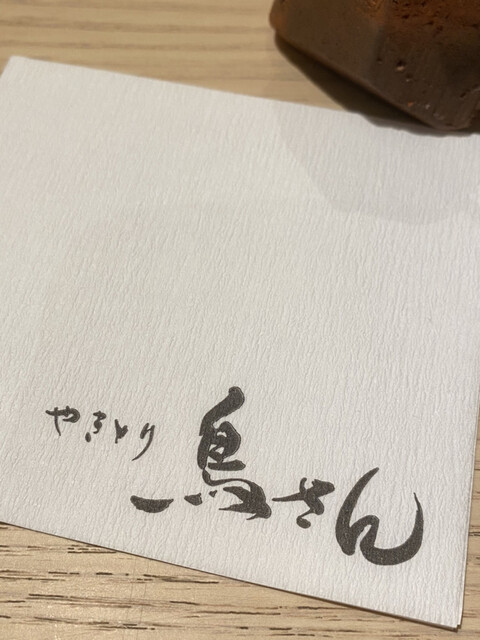 やきとり 鳥さん